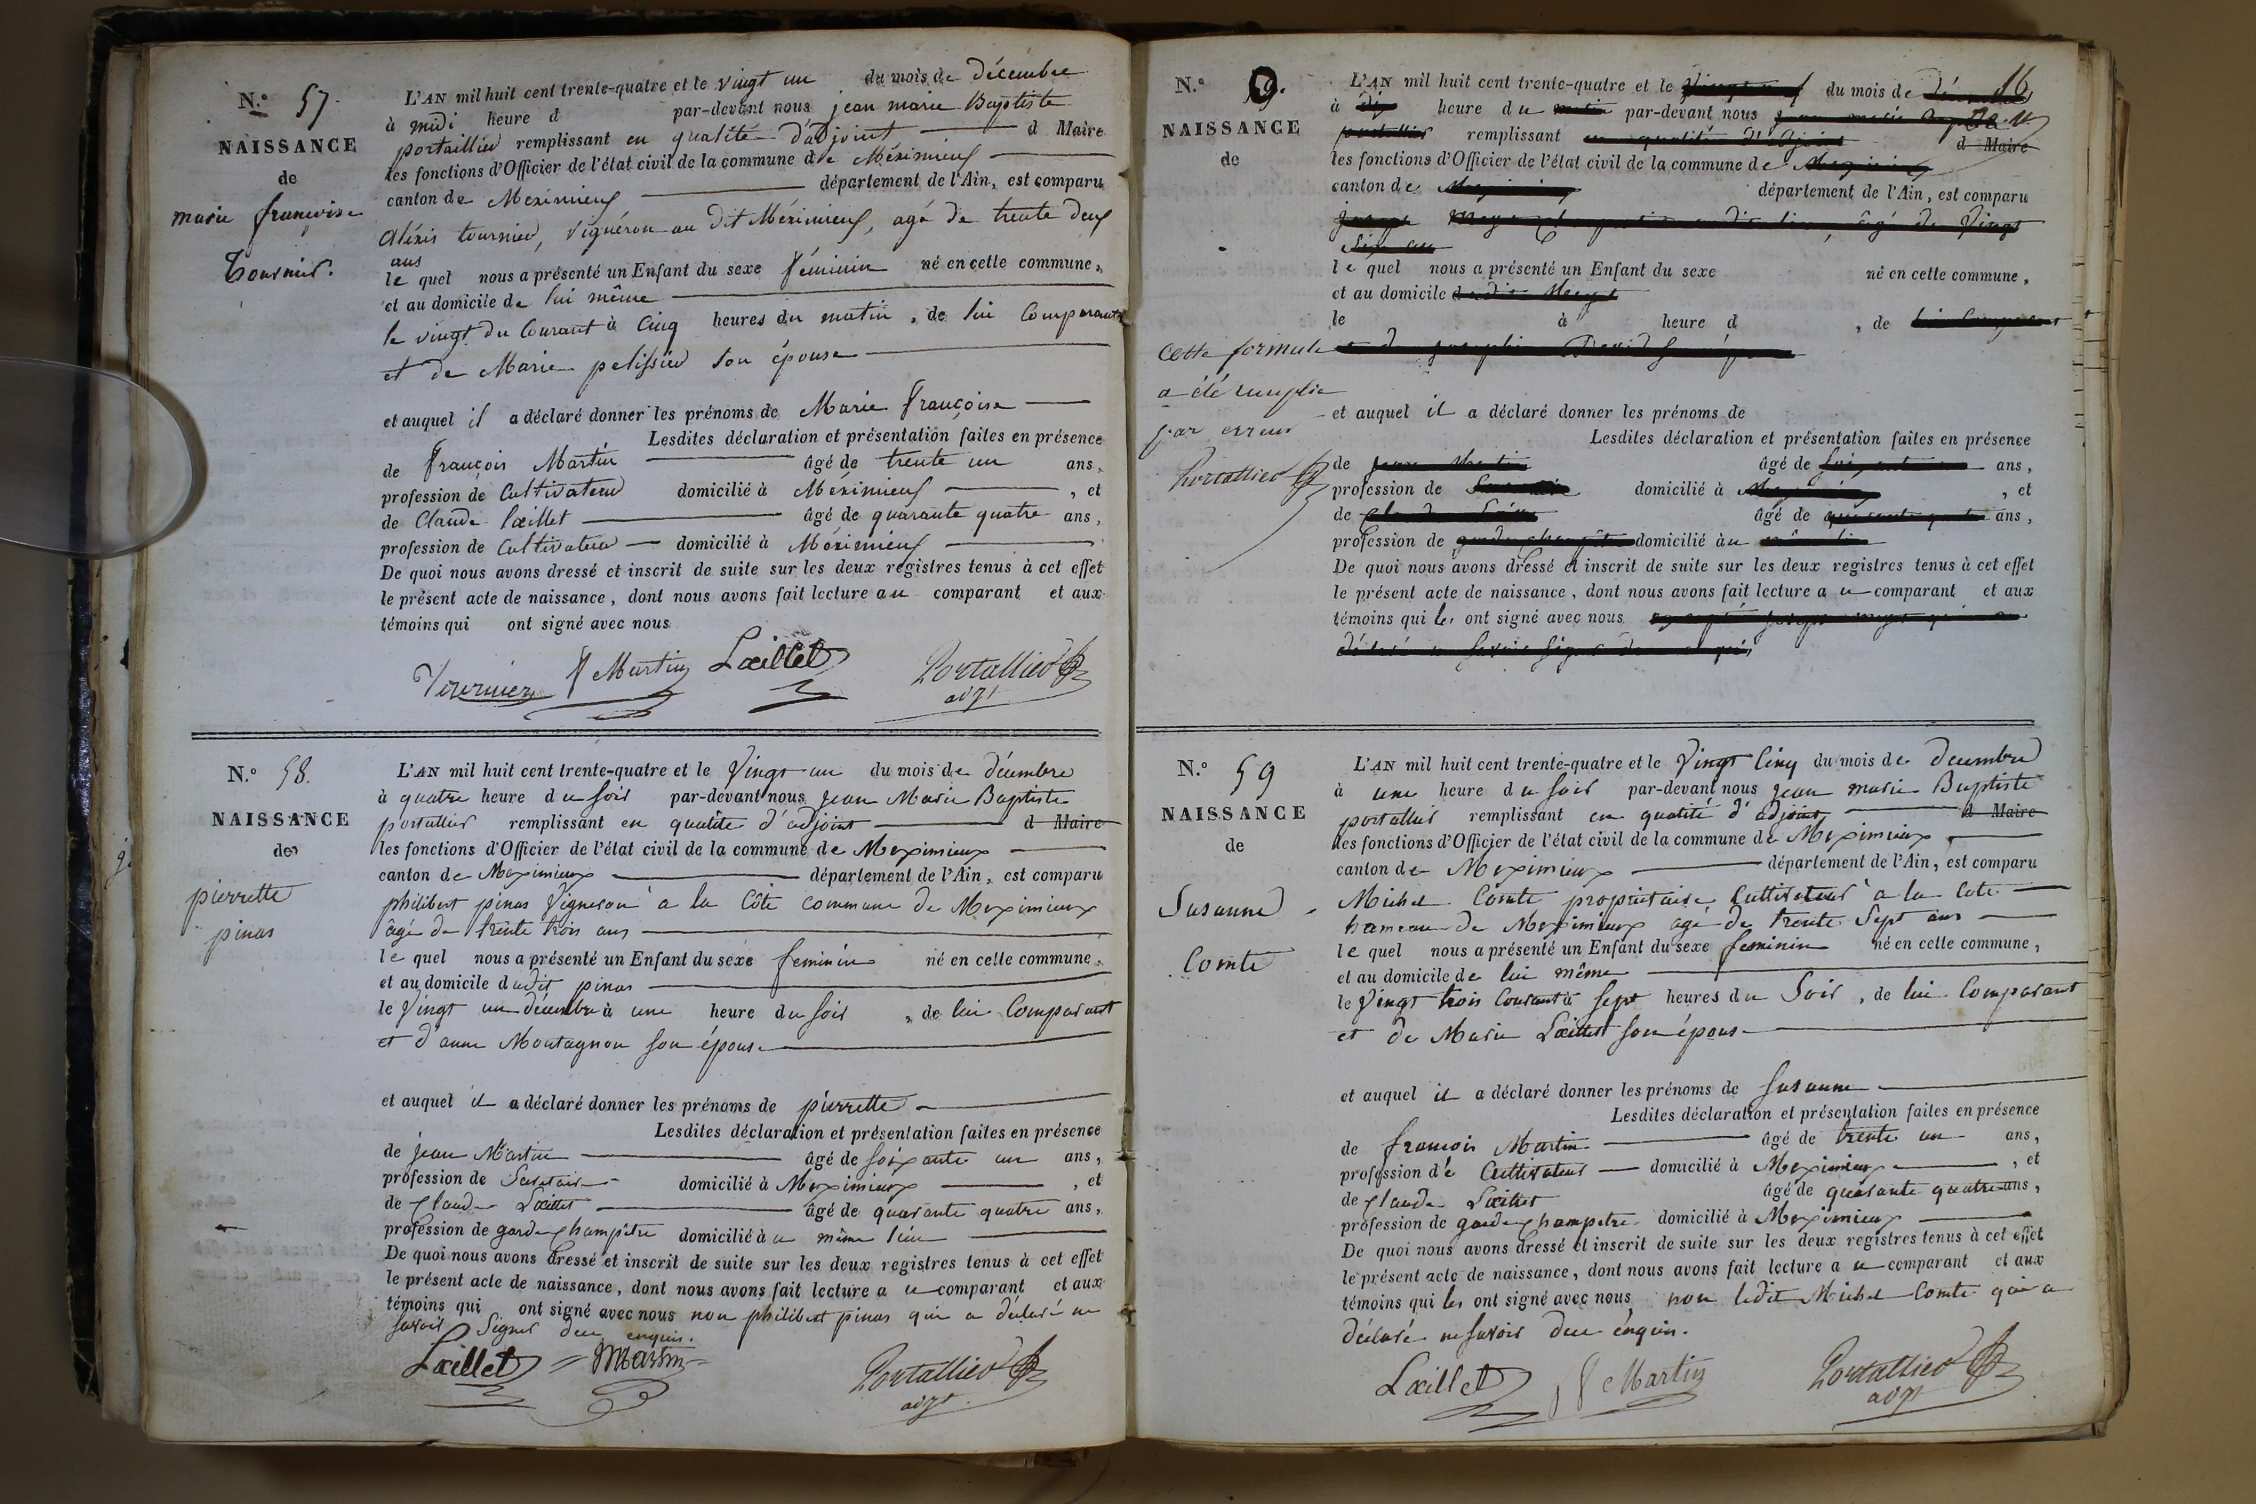 N.° 57.
NAISSANCE
de
marie françoise
tournier.
L'AN mil huit cent trente-quatre et le vingt un du mois de décembre
à midi heure d par-devant nous jean marie Baptiste
portallier remplissant en qualité d'adjoint d Maire
les fonctions d'Officier de l'état civil de la commune de Méximieux
canton de Meximieux département de l'Ain, est comparu
Aléxis tournier, vignéron au dit Méximieux, agé de trente deux
ans
le quel nous a présenté un Enfant du sexe féminin né en cette commune,
et au domicile de lui même
le vingt du Courant à Cinq heures du matin, de lui Comparant
et de Marie pelissier son épouse
et auquel il a déclaré donner les prénoms de Marie françoise
Lesdites déclaration et présentation faites en présence
de françois Martin âgé de trente un ans,
profession de Cultivateur domicilié à Méximieux, et
de Claude Lœillet âgé de quarante quatre ans,
profession de Cultivateur domicilié à Meximieux
De quoi nous avons dressé et inscrit de suite sur les deux registres tenus à cet effet
le présent acte de naissance, dont nous avons fait lecture au comparant et aux
témoins qui ont signé avec nous
Tournier f Martin Lœillet Portallier
adjt
N.° 58.
NAISSANCE
de
pierrette
pinas
L'AN mil huit cent trente-quatre et le Vingt un du mois de décembre
à quatre heure du soir par-devant nous jean Marie Baptiste
portallier remplissant en qualité d'adjoint d Maire
les fonctions d'Officier de l'état civil de la commune de Meximieux
canton de Meximieux département de l'Ain, est comparu
philibert pinas Vigneron à la Côte commune de Meximieux
âgé de trente trois ans
le quel nous a présenté un Enfant du sexe feminin né en cette commune,
et au domicile dudit pinas
le Vingt un décembre à une heure du soir, de lui Comparant
et d'anne Montagnon son épouse
et auquel il a déclaré donner les prénoms de pierrette
Lesdites déclaration et présentation faites en présence
de jean Martin âgé de soixante un ans,
profession de Secretaire domicilié à Meximieux, et
de Claude Lœillet âgé de quarante quatre ans,
profession de garde champêtre domicilié au même lieu
De quoi nous avons dressé et inscrit de suite sur les deux registres tenus à cet effet
le présent acte de naissance, dont nous avons fait lecture au comparant et aux
témoins qui ont signé avec nous non philibert pinas qui a déclaré ne
savoir Signer deu enquis.
Lœillet Martin Portallier
adjt
N.° 59.
NAISSANCE
de
L'AN mil huit cent trente-quatre et le du mois de
à heure du par-devant nous
remplissant d Maire
les fonctions d'Officier de l'état civil de la commune de
canton de département de l'Ain, est comparu
le quel nous a présenté un Enfant du sexe né en cette commune,
et au domicile
le à heure d, de
cette formule
a été remplie
par erreur
Portallier
et auquel il a déclaré donner les prénoms de
Lesdites déclaration et présentation faites en présence
de âgé de ans,
profession de domicilié à, et
de âgé de ans,
profession de domicilié au
De quoi nous avons dressé et inscrit de suite sur les deux registres tenus à cet effet
le présent acte de naissance, dont nous avons fait lecture au comparant et aux
témoins qui les ont signé avec nous
N.° 59
NAISSANCE
de
Susanne
Comte
L'AN mil huit cent trente-quatre et le Vingt Cinq du mois de decembre
à une heure du soir par-devant nous jean marie Baptiste
portallier remplissant en qualité d'adjoint d Maire
les fonctions d'Officier de l'état civil de la commune de Meximieux
canton de Meximieux département de l'Ain, est comparu
Michel Comte propriétaire Cultivateur à la Cote
hameau de Meximieux agé de trente Sept ans
le quel nous a présenté un Enfant du sexe feminin né en cette commune,
et au domicile de lui même
le Vingt trois Courant à sept heures du Soir, de lui Comparant
et de Marie Lœillet son épouse
et auquel il a déclaré donner les prénoms de Susanne
Lesdites déclaration et présentation faites en présence
de françois Martin âgé de trente un ans,
profession de Cultivateur domicilié à Meximieux, et
de Claude Lœillet âgé de quarante quatre ans,
profession de garde champetre domicilié à Meximieux
De quoi nous avons dressé et inscrit de suite sur les deux registres tenus à cet effet
le présent acte de naissance, dont nous avons fait lecture au comparant et aux
témoins qui les ont signé avec nous non ledit Michel Comte qui a
déclaré ne savoir deu énquis.
Lœillet f Martin Portallier
adjt